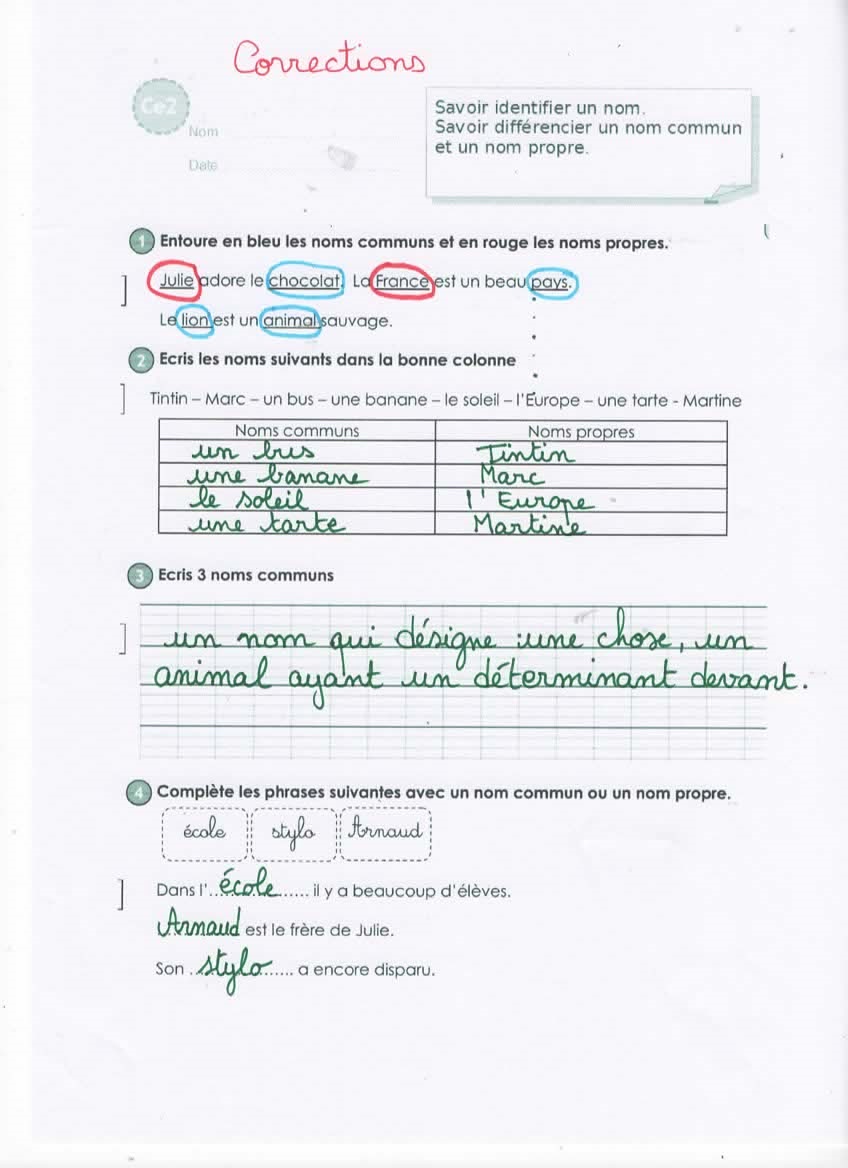 Corrections
Ce2
Nom
Date
Savoir identifier un nom.
Savoir différencier un nom commun
et un nom propre.
1 Entoure en bleu les noms communs et en rouge les noms propres.
Julie adore le chocolat. La France est un beau pays.
Le lion est un animal sauvage.
2 Ecris les noms suivants dans la bonne colonne
Tintin – Marc – un bus – une banane – le soleil – l'Europe – une tarte - Martine
Noms communs Noms propres
un bus Tintin
une banane Marc
le soleil l'Europe
une tarte Martine
3 Ecris 3 noms communs
un nom qui désigne : une chose, un
animal ayant un déterminant devant.
4 Complète les phrases suivantes avec un nom commun ou un nom propre.
école stylo Arnaud
Dans l'...école...... il y a beaucoup d'élèves.
Arnaud est le frère de Julie.
Son ..stylo...... a encore disparu.